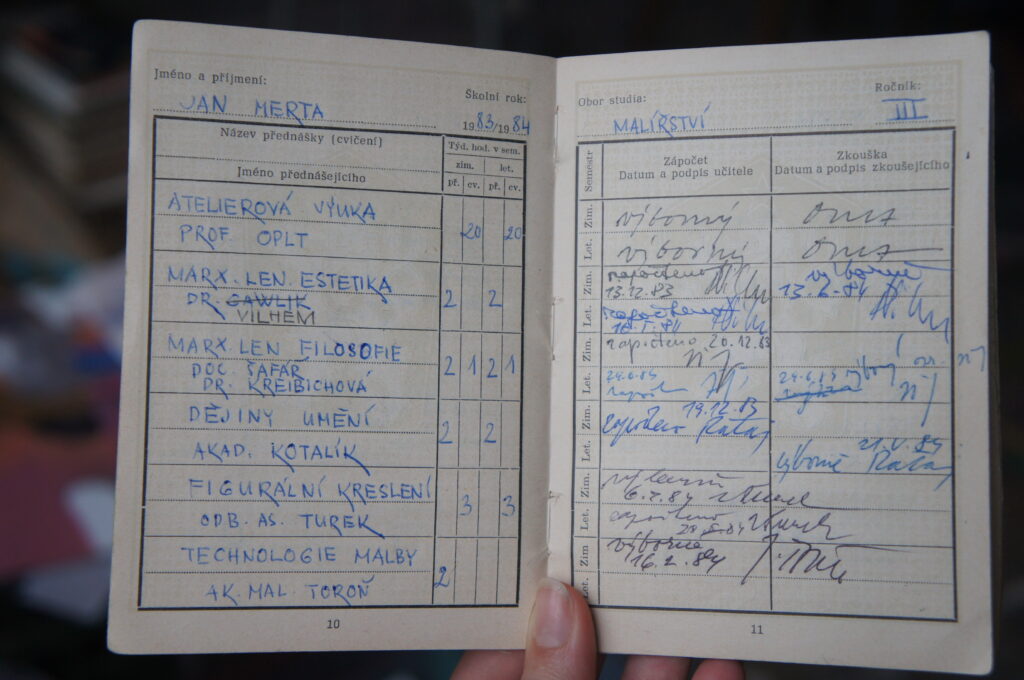 Jméno a příjmení:
JAN MERTA
Školní rok:
1983/1984
Název přednášky (cvičení)
Jméno přednášejícího
Týd. hod. v sem.
zim. let.
př. cv. př. cv.
ATELIEROVÁ VÝUKA
PROF. OPLT
20 20
MARX. LEN. ESTETIKA
DR. GAWLIK
VILHEM
2 2
MARX. LEN FILOSOFIE
DOC. ŠAFÁŘ
DR. KREIBICHOVÁ
2 1 2 1
DĚJINY UMĚNÍ
AKAD. KOTALÍK
2 2
FIGURÁLNÍ KRESLENÍ
ODB. AS. TUREK
3 3
TECHNOLOGIE MALBY
AK. MAL. TOROŇ
2
10
Obor studia:
MALÍŘSTVÍ
Ročník:
III
Semestr
Zápočet
Datum a podpis učitele
Zkouška
Datum a podpis zkoušejícího
Zim. výborný
Let. výborný
Zim. započteno
13.12.83
výborně
13.2.84
Let. započteno
Zim. započteno 20.12.83
Let. 24.6.84
24.6.84
Zim. 19.12.83
započteno
Let. 21.V.84
výborně
Zim.
6.2.84
Let. započteno
Zim výborně
16.2.84
Let.
11